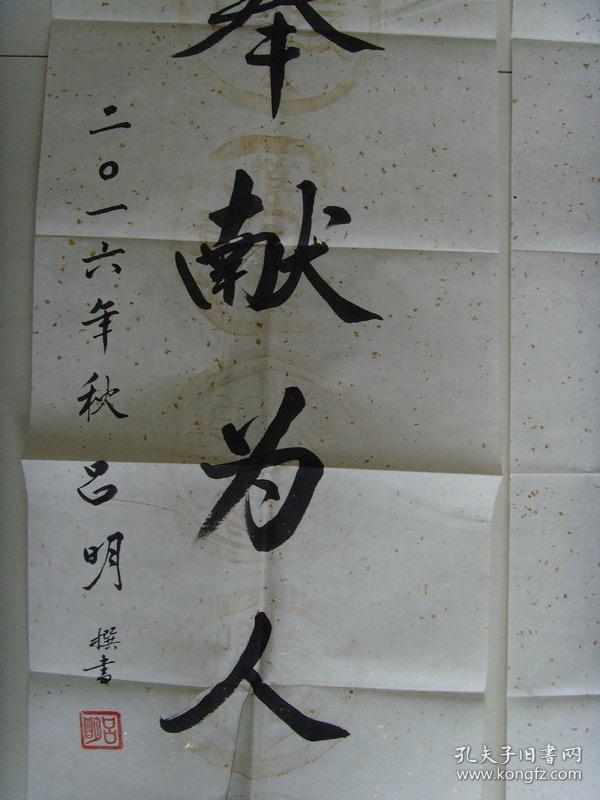 奉献为人
二〇一六年秋吕明撰书
吕明
孔夫子旧书网
www.kongfz.com